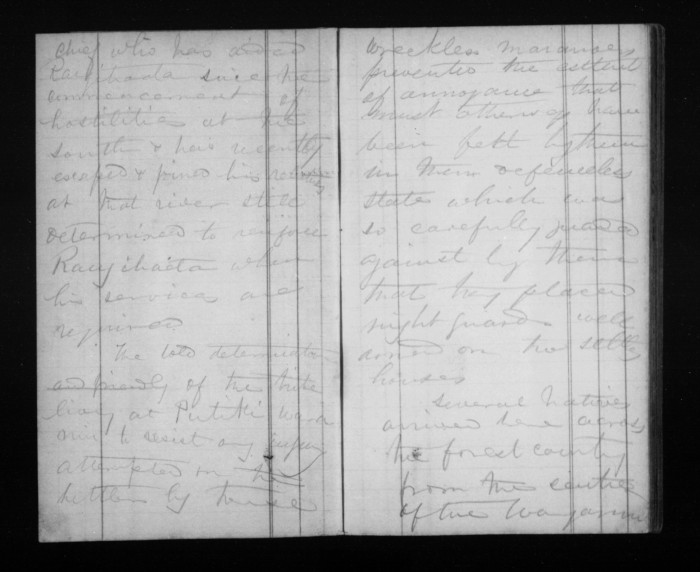 chief who has aided
Rangihaeta since the
commencement of
hostilities at the
south & has recently
escaped & joined his
at that river still
determined to rejoin
Rangihaeta when
his services are
required
The bold determination
and friendly of the tribe
living at Putiki
to resist any injury
attempted on the
settlers by these
wreckless marauders
prevented the extent
of annoyance that
must otherways have
been felt by them
in their defenceless
state which was
so carefully guarded
against by them
that they placed
night guards well
armed on the settlers
houses
Several Natives
arrived here across
the forest country
from the centre
of the